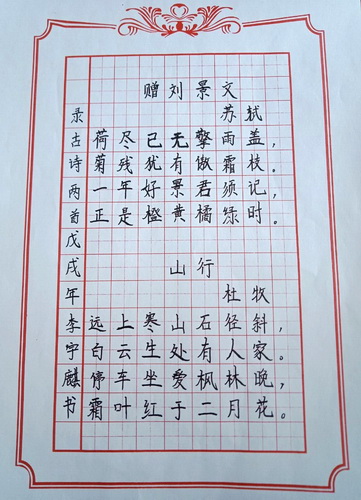 赠刘景文
苏轼
荷尽已无擎雨盖，
菊残犹有傲霜枝。
一年好景君须记，
正是橙黄橘绿时。
山行
杜牧
远上寒山石径斜，
白云生处有人家。
停车坐爱枫林晚，
霜叶红于二月花。
录古诗两首戊戌年李宇麒书